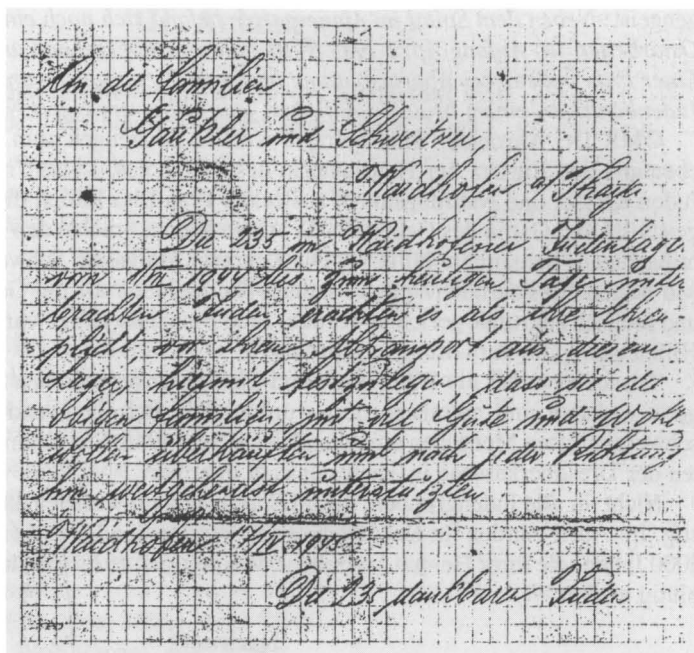 An die Familien
Gaukler und Schweitzer,
Waidhofen a/Thaya
Die 235 im Waidhofener Judenlager
vom 1944 bis zum heutigen Tage unter
brachten Juden, erachten es als ihre Ehren-
pflicht vor ihrem Abtransport aus diesem
Lager, hiemit festzulegen dass sie die
obigen Familien, mit viel Güte und Wohl
wollen überhäuften und nach jeder Richtung
hin weitgehendst unterstützten.
Waidhofen 1945
Die 235 dankbaren Juden